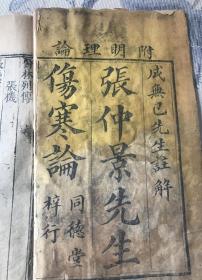 論理明附
成無已先生註解
張仲景先生
傷寒論
同德堂
梓行
張儀